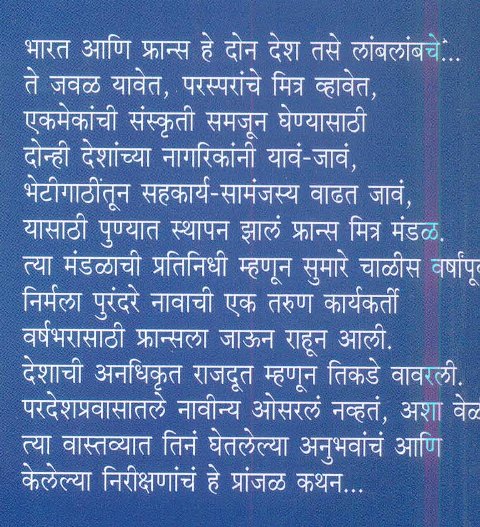 भारत आणि फ्रान्स हे दोन देश तसे लांबलांबचे...
ते जवळ यावेत, परस्परांचे मित्र व्हावेत,
एकमेकांची संस्कृती समजून घेण्यासाठी
दोन्ही देशांच्या नागरिकांनी यावं-जावं,
भेटीगाठींतून सहकार्य-सामंजस्य वाढत जावं,
यासाठी पुण्यात स्थापन झालं फ्रान्स मित्र मंडळ.
त्या मंडळाची प्रतिनिधी म्हणून सुमारे चाळीस वर्षांपू
निर्मला पुरंदरे नावाची एक तरुण कार्यकर्ती
वर्षभरासाठी फ्रान्सला जाऊन राहून आली.
देशाची अनधिकृत राजदूत म्हणून तिकडे वावरली.
परदेशप्रवासातले नावीन्य ओसरलं नव्हतं, अशा वेळ
त्या वास्तव्यात तिनं घेतलेल्या अनुभवांचं आणि
केलेल्या निरीक्षणांचं हे प्रांजळ कथन...